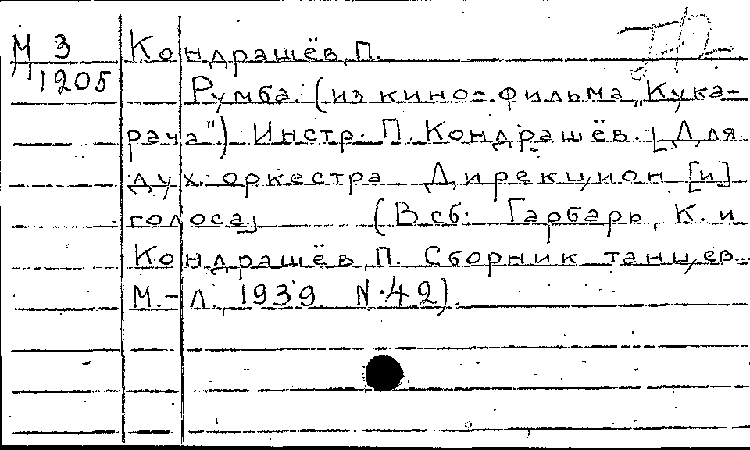 М 3
1205
Кондрашёв, П.
Румба. (из кино=фильма „Кука-
рача".) Инстр. П. Кондрашёв. [Для
дух. оркестра Дирекцион [и]
голоса]     (В сб. Гарбарь, К. и
Кондрашёв, П. Сборник танцев.
М.-Л. 1939 N.42).